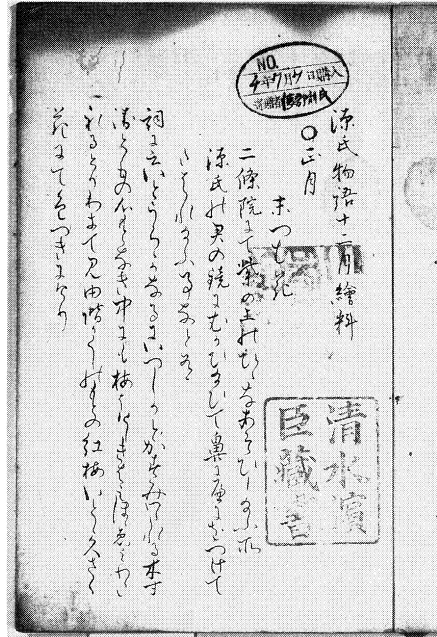 NO.
源氏物語十二月繪料
〇正月
末つむ花
二條院にて紫の上のひゝなあそひし給ふ所
源氏の君の鏡にむかひ給ひて鼻に紅をつけて
たはれ給ふ事なと有
詞に云いとうらゝかなるにいつしかとかすみわたれる木す
ゑともの心もとなき中にも梅はけしきはみほゝゑみわた
れるとりわきて見ゆ階かくしのもとの紅梅いとゝくさく
花にて色つきにけり
清水濱
臣藏書